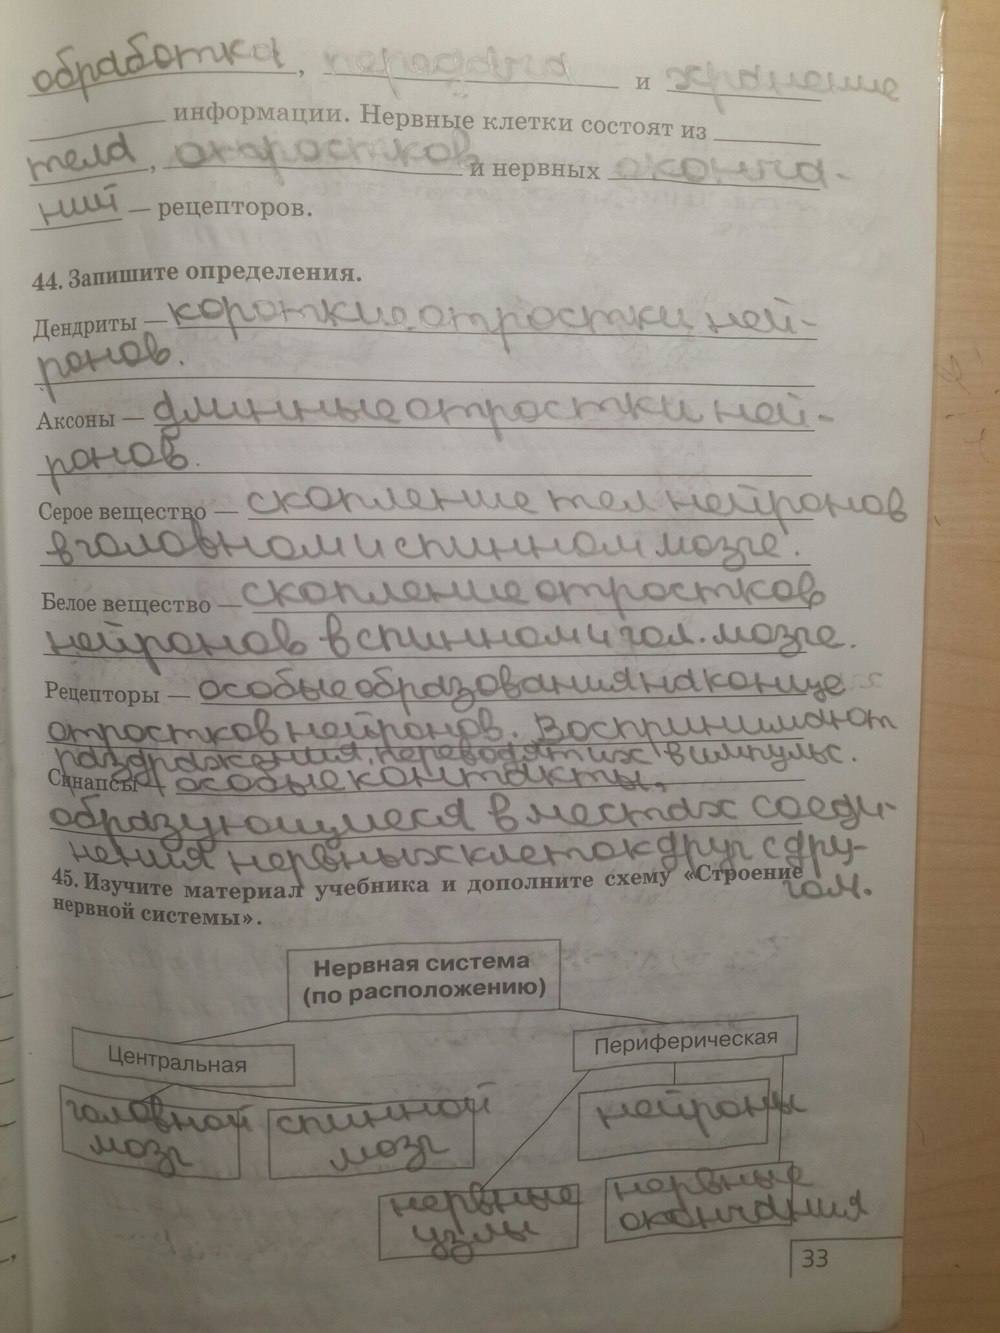 обработка, передача и хранение
информации. Нервные клетки состоят из
тела, отростков и нервных оконча-
ний — рецепторов.
44. Запишите определения.
Дендриты — короткие отростки ней-
ронов.
Аксоны — длинные отростки ней-
ронов.
Серое вещество — скопление тел нейронов
в головном и спинном мозге.
Белое вещество — скопление отростков
нейронов в спинном и гол. мозге.
Рецепторы — особые образования на конце
отростков нейронов. Воспринимают
раздражения, переводят их в импульс.
Синапсы — особые контакты,
образующиеся в местах соеди-
нения нервных клеток друг с дру-
гом.
45. Изучите материал учебника и дополните схему «Строение
нервной системы».
Нервная система
(по расположению)
Центральная
Периферическая
головной
мозг
спинной
мозг
нейроны
нервные
узлы
нервные
окончания
33